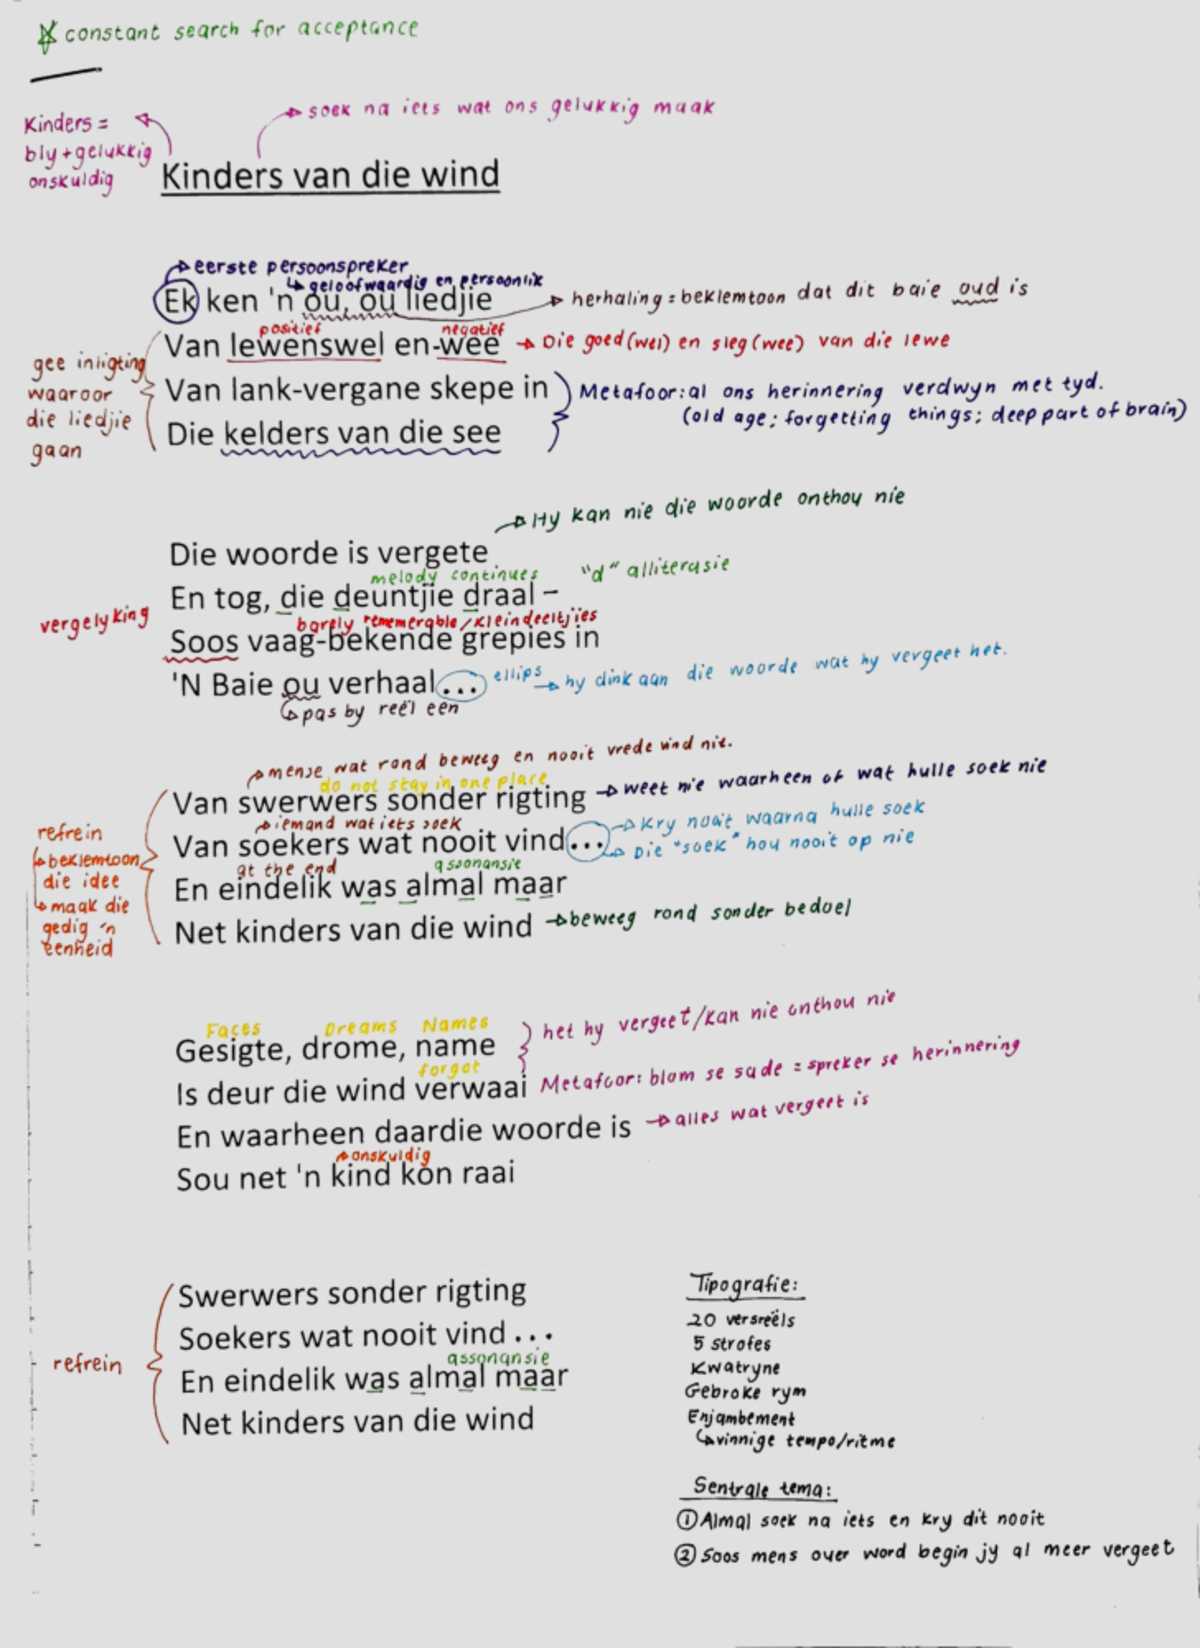 constant search for acceptance
soek na iets wat ons gelukkig maak
Kinders =
bly + gelukkig
onskuldig
Kinders van die wind
eerste persoonspreker
geloofwaardig en persoonlik
Ek ken 'n ou, ou liedjie
herhaling = beklemtoon dat dit baie oud is
positief negatief
Van lewenswel en-wee
Die goed (wel) en sleg (wee) van die lewe
gee inligting
waaroor
die liedjie
gaan
Van lank-vergane skepe in
Metafoor: al ons herinnering verdwyn met tyd.
Die kelders van die see
(old age; forgetting things; deep part of brain)
Hy kan nie die woorde onthou nie
Die woorde is vergete
melody continues
"d" alliterasie
En tog, die deuntjie draal –
vergelyking
barely rememerable/kleindeeltjies
Soos vaag-bekende grepies in
'N Baie ou verhaal...
ellips
hy dink aan die woorde wat hy vergeet het.
pas by reël een
mense wat rond beweeg en nooit vrede vind nie.
do not stay in one place
Van swerwers sonder rigting
weet nie waarheen of wat hulle soek nie
iemand wat iets soek
Van soekers wat nooit vind...
Kry nooit waarna hulle soek
Die "soek" hou nooit op nie
refrein
beklemtoon
die idee
maak die
gedig 'n
eenheid
at the end assonansie
En eindelik was almal maar
Net kinders van die wind
beweeg rond sonder bedoel
Faces Dreams Names
Gesigte, drome, name
het hy vergeet/kan nie onthou nie
forgot
Is deur die wind verwaai
Metafoor: blom se sade = spreker se herinnering
En waarheen daardie woorde is
alles wat vergeet is
onskuldig
Sou net 'n kind kon raai
Swerwers sonder rigting
Soekers wat nooit vind ...
refrein
assonansie
En eindelik was almal maar
Net kinders van die wind
Tipografie:
20 versreëls
5 strofes
Kwatryne
Gebroke rym
Enjambement
vinnige tempo/ritme
Sentrale tema:
① Almal soek na iets en kry dit nooit
② Soos mens ouer word begin jy al meer vergeet